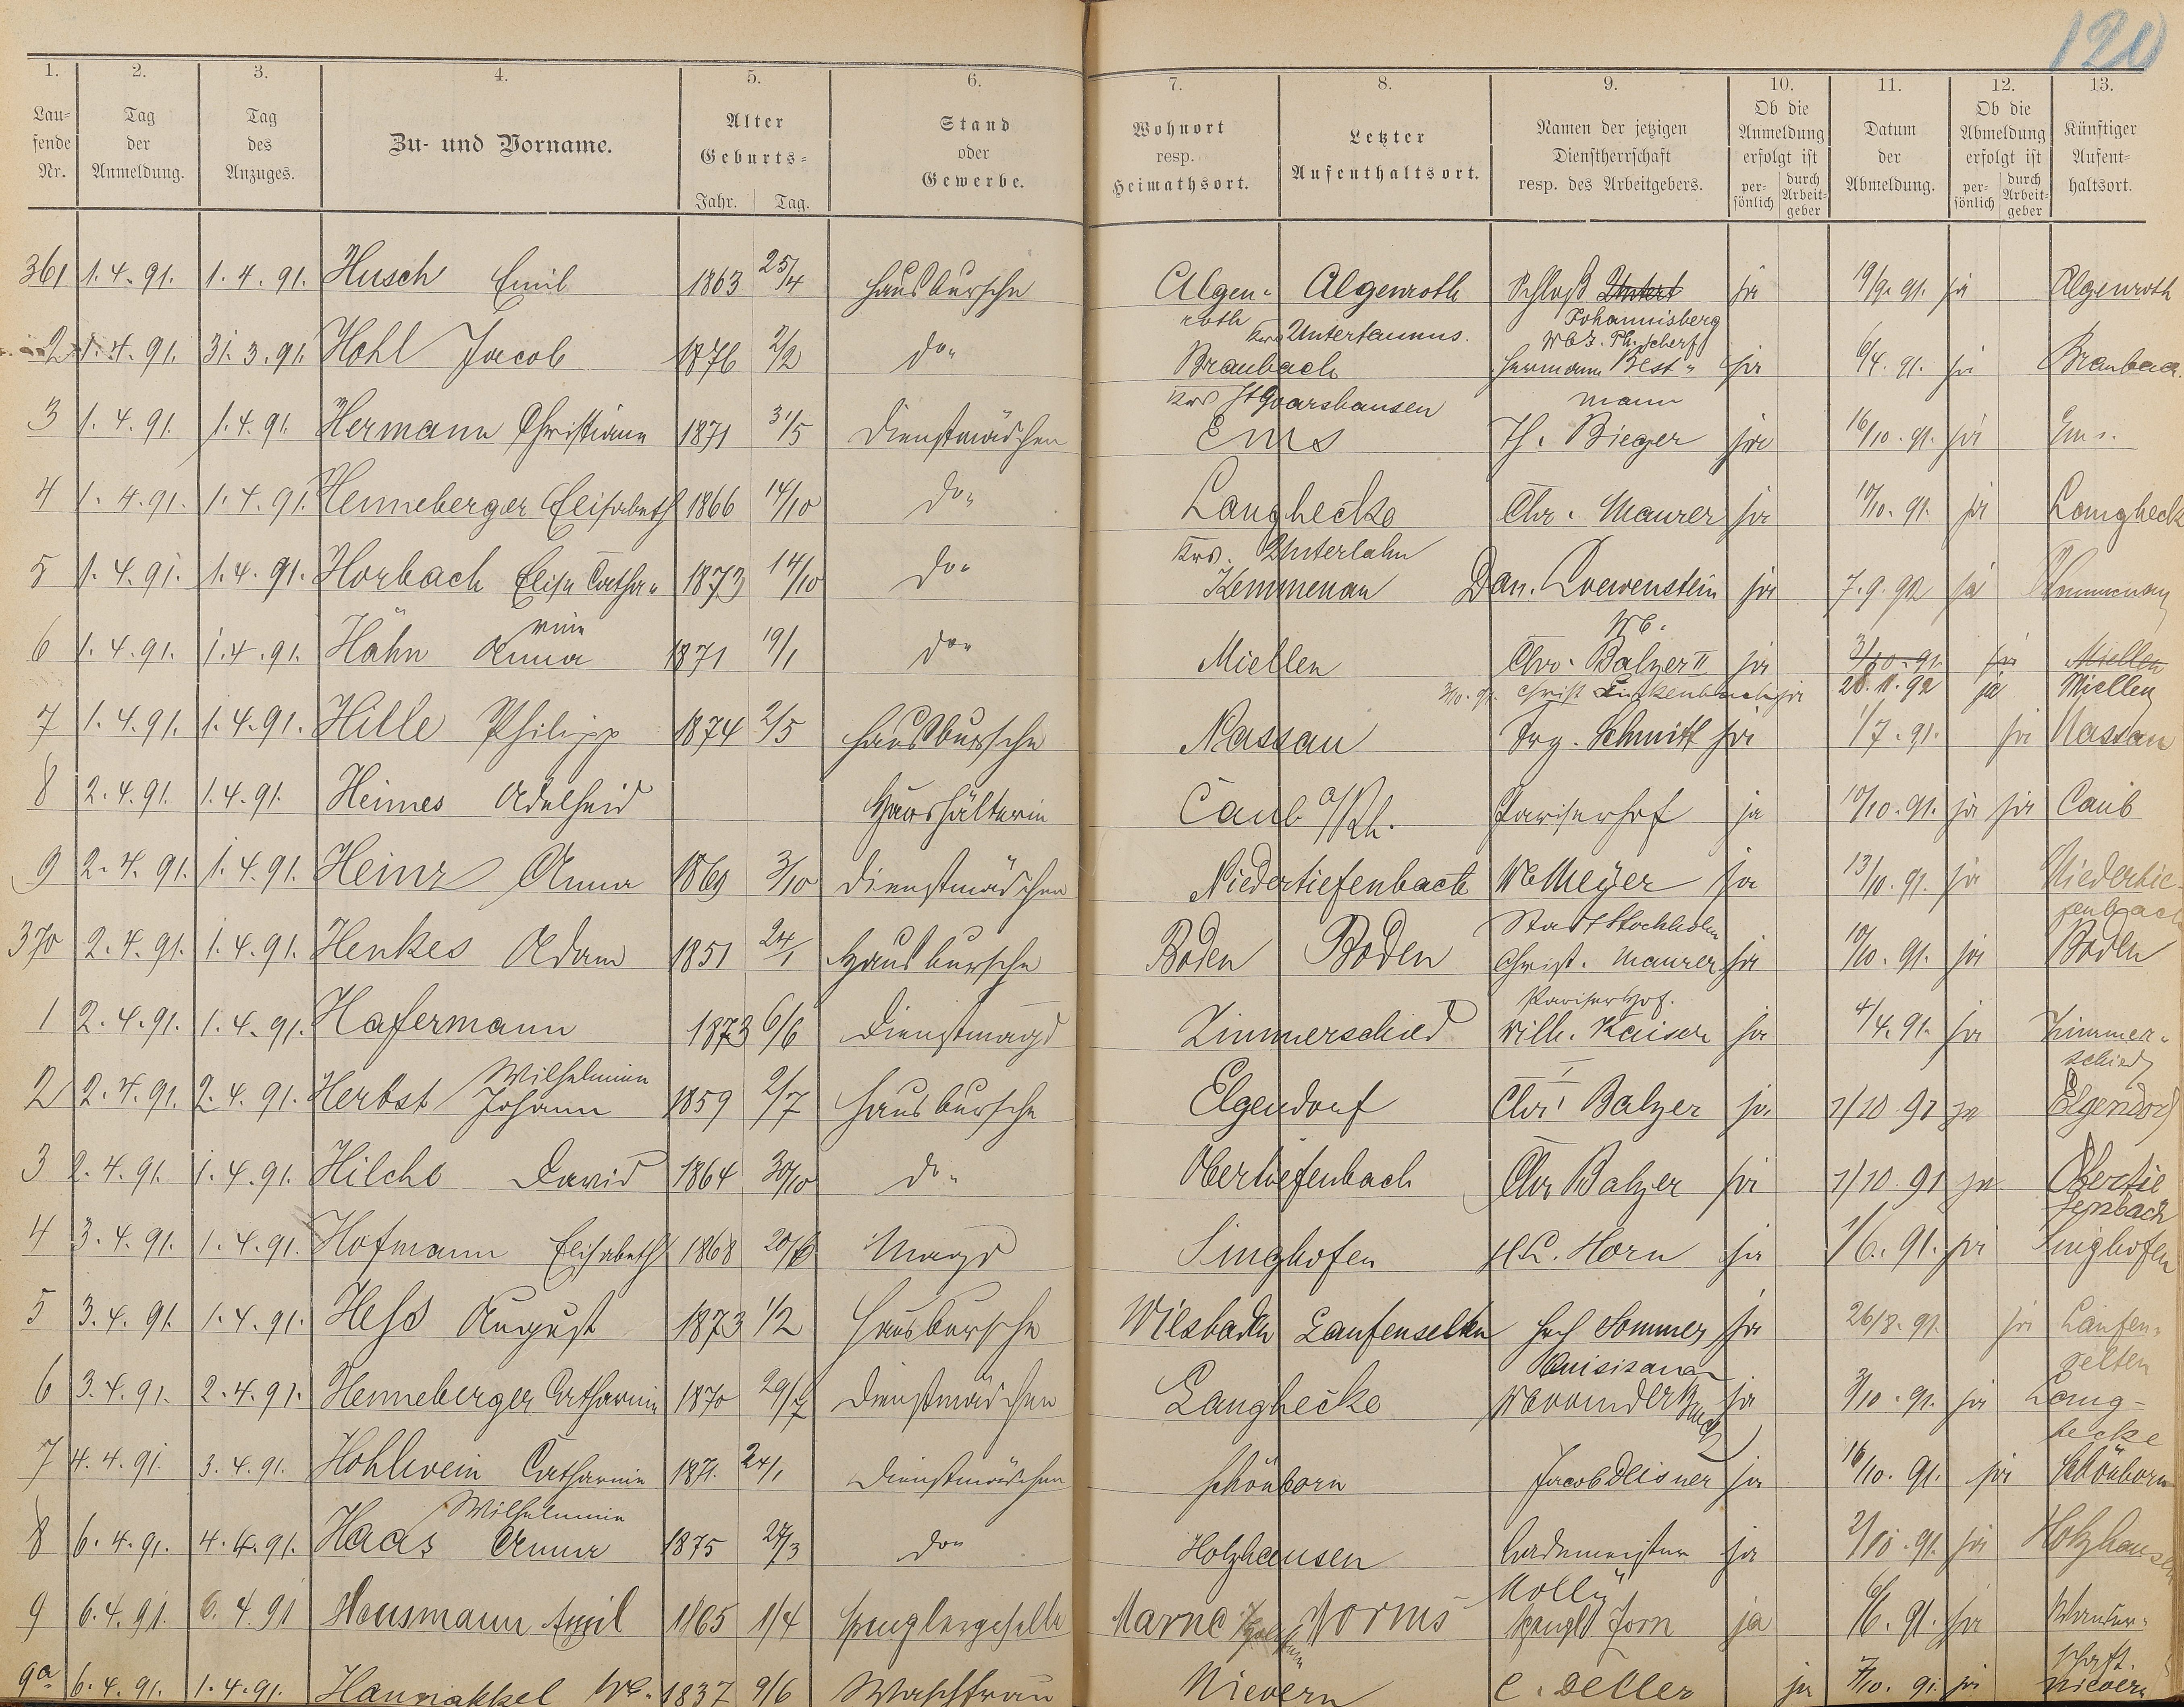 120
1. 2. 3. 4. 5. 6. 7. 8. 9. 10. 11. 12. 13.
Lau=fende Nr. Tag der Anmeldung. Tag des Anzuges. Zu- und Vorname. Alter Geburts= Jahr. Tag. Stand oder Gewerbe. Wohnort resp. Heimathsort. Letzter Aufenthaltsort. Namen der jetzigen Dienstherrschaft resp. des Arbeitgebers. Ob die Anmeldung erfolgt ist per=sönlich durch Arbeit=geber Datum der Abmeldung. Ob die Abmeldung erfolgt ist per=sönlich durch Arbeit=geber Künftiger Aufent=haltsort.
361 1.4.91. 1.4.91. Husch Emil 1863 25/4 Hausbursche Algen- Algenroth Schloß ja 19/9.91. ja Algenroth
roth Krs Untertaunus. Johannisberg
Wbz. Ph. Scherf
2 1.4.91. 31.3.91. Hohl Jacob 1876 2/2 do" Braubach Hermann Best" ja 6/4.91. ja Braubach
Krs St Goarshausen mann
3 1.4.91. 1.4.91. Hermann Christiane 1871 31/5 Dienstmädchen Ems Th. Bieger ja 16/10.91. ja Ems.
4 1.4.91. 1.4.91. Henneberger Elisabeth 1866 14/10 do" Langhecke Chr. Maurer ja 10/10.91. ja Langheck
Krs. Unterlahn
5 1.4.91. 1.4.91. Horbach Elise Catha" 1873 14/10 do" Kemmenau Dan. Loewenstein ja 7.9.92 ja Kemmenau
rine Wb.
6 1.4.91. 1.4.91. Hähn Anna 1871 19/1 do" Miellen Chr. Balzer II ja 3/10.91. ja Miellen
3/10.91. Christ Linkenbach ja 28.11.92 ja Miellen
7 1.4.91. 1.4.91. Hille Philipp 1874 2/5 Hausbursche Nassau Frz. Schmitt ja 1/7.91. ja Nassau
8 2.4.91. 1.4.91. Heimes Adelheid Haushälterin Caub a/Rh. Pariserhof ja 10/10.91. ja ja Caub
9 2.4.91. 1.4.91. Heinz Anna 1869 3/10 Dienstmädchen Niedertiefenbach Wb Meyer ja 13/10.91. ja Niedertie-
Stadt Stockholm fenbach
370 2.4.91. 1.4.91. Henkes Adam 1851 24/1 Hausbursche Boden Boden Christ. Maurer ja 10/10.91. ja Boden
Pariserhof.
1 2.4.91. 1.4.91. Hafermann 1873 6/6 Dienstmagd Zimmerschied Wilh. Kaiser ja 4/4.91. ja Zimmer-
Wilhelmine I schied
2 2.4.91. 2.4.91. Herbst Johann 1859 2/7 Hausbursche Elgendorf Chr. Balzer ja 1/10.91 ja Elgendorf
3 2.4.91. 1.4.91. Hilche David 1864 30/10 do" Obertiefenbach Chr Balzer ja 1/10.91 ja Obertie
fenbach
4 3.4.91. 1.4.91. Hofmann Elisabeth 1868 Magd Singhofen H.L. Horn ja 1/6.91. ja Singhofen
5 3.4.91. 1.4.91. Heß August 1873 1/2 Hausbursche Wiesbaden Laufenselden Hch Sommer ja 26/8.91. ja Laufen-
Quisisana selten
6 3.4.91. 2.4.91. Henneberger Catharine 1870 29/7 Dienstmädchen Langhecke ja 3/10.91. ja Lang-
hecke
7 4.4.91. 3.4.91. Hohlwein Catharine 1871. 24/1 Dienstmädchen Schönborn Jacob ja 16/10.91. ja Schönborn
Wilhelmine
8 6.4.91. 4.4.91. Haas Anna 1875 27/3 do" Holzhausen Bademeister ja 2/10.91. ja Holzhausen
Molly
9 6.4.91. 6.4.91 Hausmann Emil 1865 1/4 Spenglergeselle Marne Worms Spengl Zorn ja 6/6.91. ja Wander-
schaft.
9a 6.4.91. 1.4.91. We. 1837 9/6 Waschfrau Nievern C. Deller ja 7/10.91. ja Nievern